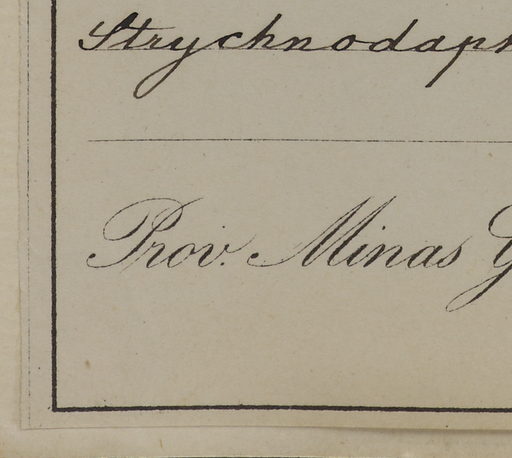 Strychnodaph
Prov. Minas G